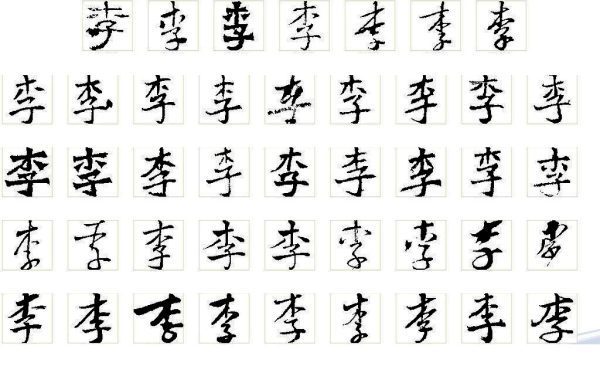 李李李李李李李
李李李李李李李李李
李李李李李李李李李
李李李李李李李李
李李李李李李李李李